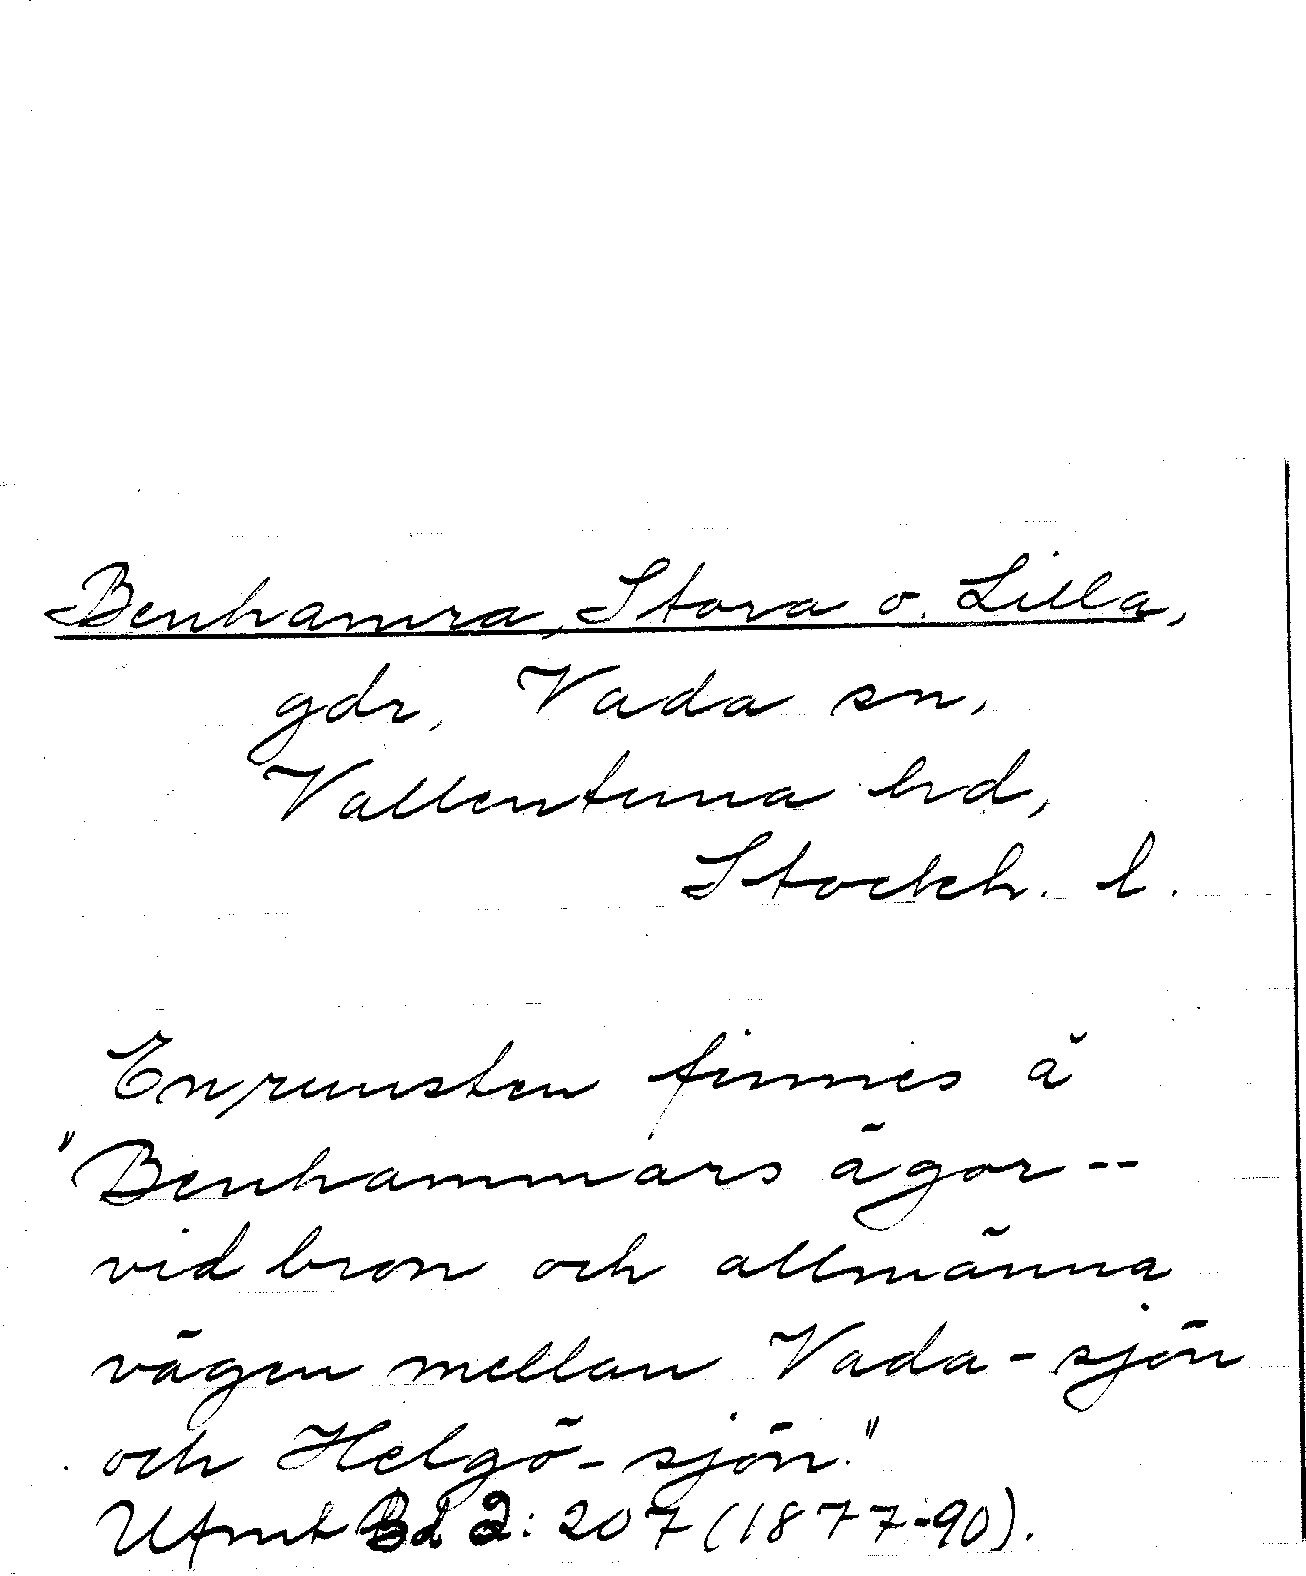 Benhamra, Stora o. Lilla,
gdr, Vada sn,
Vallentuna hrd,
Stockh. l.
En runsten finnes å
"Benhammars ägor --
vid bron och allmänna
vägen mellan Vada-sjön
och Helgö-sjön."
Ufmt Bd 2: 207 (1877-90).